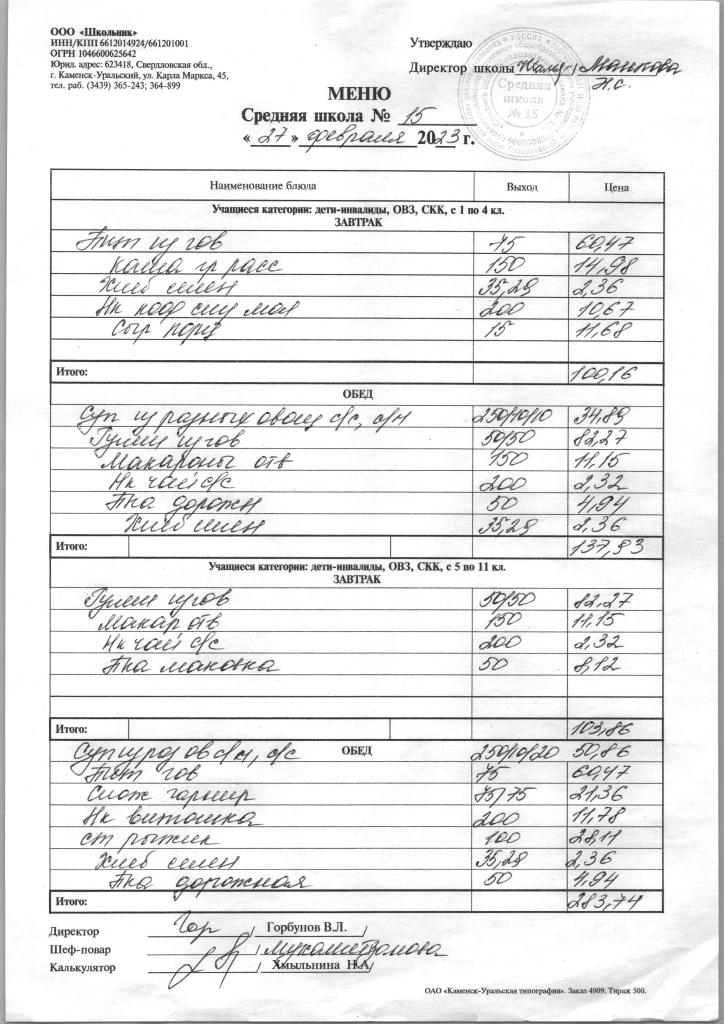 ООО «Школьник»
ИНН/КПП 6612014924/661201001
ОГРН 1046600625642
Юрид. адрес: 623418, Свердловская обл.,
г. Каменск-Уральский, ул. Карла Маркса, 45,
тел. раб. (3439) 365-243; 364-899
Утверждаю
Директор школы
Средняя школа № 15
МЕНЮ
Средняя школа № 15
« 27 » февраля 2023 г.
Наименование блюда Выход Цена
Учащиеся категории: дети-инвалиды, ОВЗ, СКК, с 1 по 4 кл.
ЗАВТРАК
гов 75 60,47
Каша гр расс 150 14,98
Хлеб 35,29 2,36
Нк 200 10,67
Сыр порц 15 11,68
Итого: 100,16
ОБЕД
Суп из разных овощ с/с, с/м 250/10/10 34,89
Гуляш из гов 50/50 82,27
Макароны отв 150 11,15
Нк чай с/с 200 2,32
Пка дорожн 50 4,94
Хлеб 35,29 2,36
Итого: 137,93
Учащиеся категории: дети-инвалиды, ОВЗ, СКК, с 5 по 11 кл.
ЗАВТРАК
Гуляш из гов 50/50 82,27
Макар отв 150 11,15
Нк чай с/с 200 2,32
Пка маковка 50 8,12
Итого: 103,86
Суп из раз ов с/м, с/с ОБЕД 250/10/20 50,86
гов 75 60,47
Слож гарнир 75/75 21,36
Нк витошка 200 11,78
ст рыжик 100 28,11
Хлеб 35,29 2,36
Пка дорожная 50 4,94
Итого: 283,74
Директор Гор / Горбунов В.Л. /
Шеф-повар / /
Калькулятор / Хмыльнина Н.А /
ОАО «Каменск-Уральская типография». Заказ 4909. Тираж 500.